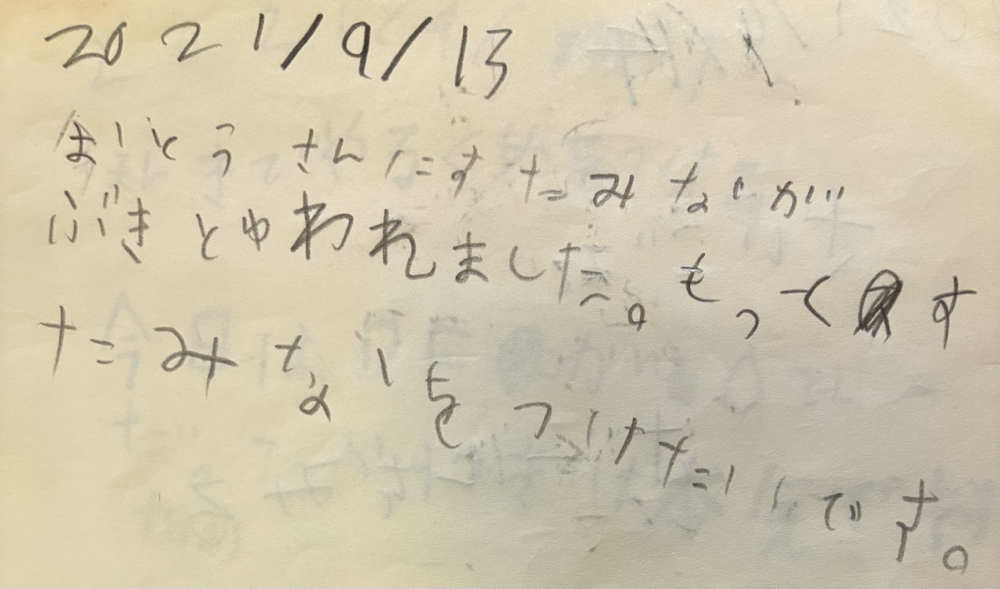 2021/9/13
おとうさんにすたみなが
ぶきとゆわれました。もっとす
たみなをつけたいです。